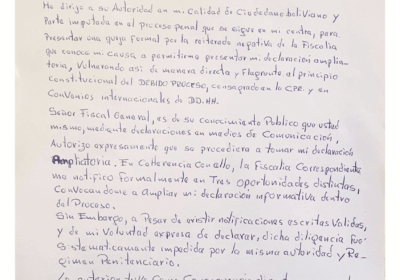 Me dirijo a su Autoridad en mi calidad de Ciudadano boliviano y
Parte imputada en el proceso penal que se sigue en mi contra, para
Presentar una queja formal por la reiterada negativa de la Fiscalía
que conoce mi causa a permitirme presentar mi declaración amplia-
toria, Vulnerando así de manera directa y Flagrante al principio
constitucional del DEBIDO PROCESO, consagrado en la CPE. y en
Convenios internacionales de DD.HH.
Señor Fiscal General, es de su conocimiento Público que usted
mismo, mediante declaraciones en medios de Comunicación,
Autorizo expresamente que se procediera a tomar mi declaración
Ampliatoria. En Coherencia Con ello, la Fiscalía Correspondiente
me notificó Formalmente en Tres oportunidades distintas,
Convocandome a Ampliar mi declaración informativa dentro
del Proceso.
Sin Embargo, a Pesar de existir notificaciones escritas Validas,
y de mi Voluntad expresa de declarar, dicha diligencia Fue
Sistematicamente impedida por la misma autoridad y Re-
gimen Penitenciario.